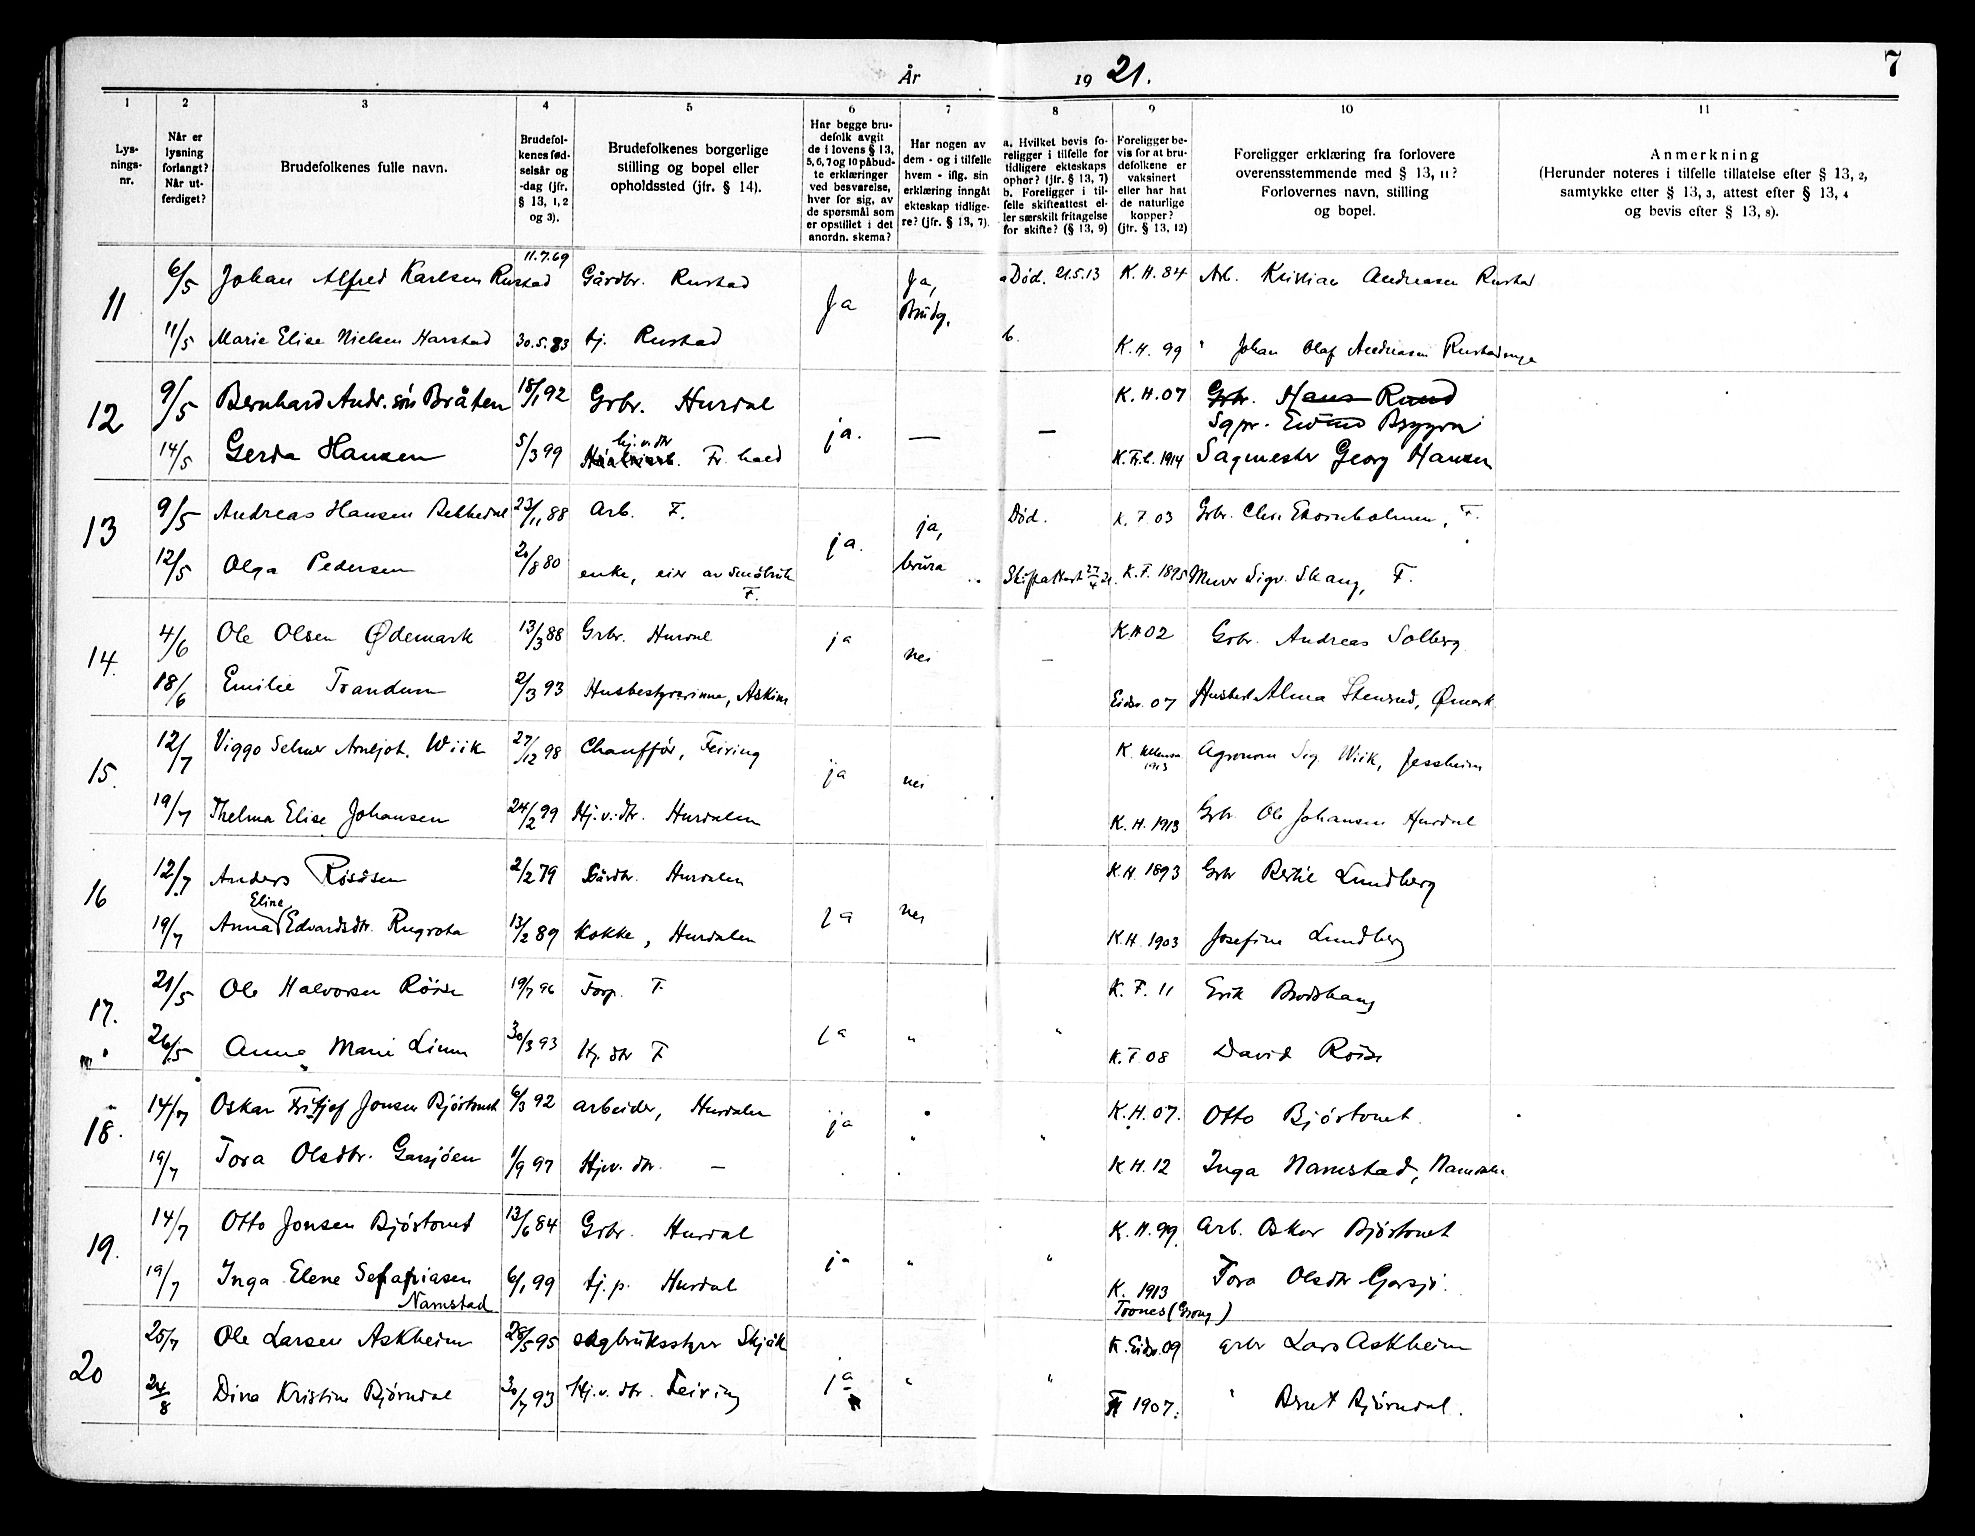 År 1921.
7
1 2 3 4 5 6 7 8 9 10 11
Lys-
nings-
nr.
Når er
lysning
forlangt?
Når ut-
ferdiget?
Brudefolkenes fulle navn.
Brudefol-
kenes fød-
selsår og
-dag (jfr.
§ 13, 1, 2
og 3).
Brudefolkenes borgerlige
stilling og bopel eller
opholdssted (jfr. § 14).
Har begge bru-
defolk avgit
de i lovens § 13,
5, 6, 7 og 10 påbud-
te erklæringer
ved besvarelse,
hver for sig, av
de spørsmål som
er opstillet i det
anordn. skema?
Har nogen av
dem - og i tilfelle
hvem - iflg. sin
erklæring inngått
ekteskap tidlige-
re? (jfr. § 13, 7).
a. Hvilket bevis fo-
religger i tilfelle for
tidligere ekteskaps
ophør? (jfr. § 13, 7)
b. Foreligger i til-
felle skifteattest el-
ler særskilt fritagelse
for skifte? (§ 13, 9)
Foreligger be-
vis for at bru-
defolkene er
vaksinert
eller har hat
de naturlige
kopper?
(jfr. § 13, 12)
Foreligger erklæring fra forlovere
overensstemmende med § 13, 11?
Forlovernes navn, stilling
og bopel.
Anmerkning
(Herunder noteres i tilfelle tillatelse efter § 13, 2,
samtykke efter § 13, 3, attest efter § 13, 4
og bevis efter § 13, 8).
11 6/5 Johan Alfred Karlsen Rustad 11.7.69 Gårdbr. Rustad Ja Ja, Brudg. a Død. 21.5.13 K.H. 84 Arb. Kristian Andreasen Rustad
11/5 Marie Elise Nielsen Harstad 30.5.83 tj. Rustad b. K.H. 99 " Johan Olaf Andreasen
12 9/5 Bernhard Andr.søn Bråten 18/1 92 Grbr. Hurdal ja. — — K.H. 07 Grbr. Hans Rund
Sgpr. Eivind
14/5 Gerda Hansen 5/3 99 hj.v.dtr Fr.hald K.Fr.h. 1914 Sagmester Georg Hansen
13 9/5 Andreas Hansen 23/11 88 Arb. F. ja. ja, brura Død. K. F. 03 Grbr. Chr. Ekornholmen, F.
12/5 Olga Pedersen 20/8 80 enke, eier av småbruk F. Skifteattest 27/4 21. K.F. 1895 Murer Sigv. Skaug, F.
14. 4/6 Ole Olsen Ødemark 13/3 88 Grbr. Hurdal ja nei — K.H 02 Grbr. Andreas Solberg
18/6 Emilie Trandum 2/3 93 Husbestyrerinne, Askim Eidsv. 07 Husbest. Alma Stensrud, Ømark
15. 12/7 Viggo Selmer Arneljot. Wiik 27/12 98 Chauffør, Feiring ja nei K. Ullensa 1913 Agronom Sig. Wiik, Jessheim
19/7 Thelma Elise Johansen 24/2 99 Hj.v.dtr. Hurdalen K.H. 1913 Grbr. Ole Johansen Hurdal
16 12/7 Anders Røsåsen 2/2 79 Gårdbr. Hurdalen ja nei K.H. 1893 Grbr Bertil Lundberg
19/7 Anna Eline Edvardsdtr. Rugrota 13/2 89 kokke, Hurdalen K.H. 1903 Josefine Lundberg
17. 21/5 Ole Halvorsen Röise 19/7 96 Forp. F. ja " " K.F. 11 Erik Brodshaug
26/5 Anna Marie Linn 30/3 93 Hj. dtr F K.F 08 David Röise
18. 14/7 Oskar Fritjof Jonsen Bjørtomt 6/3 92 arbeider, Hurdalen ja " " K.H. 07. Otto Bjørtomt.
19/7 Tora Olsdtr. Garsjøen 1/9 97 Hjv. dtr. — K H. 12 Inga Namstad, Namdalen
19. 14/7 Otto Jonsen Bjørtomt 13/6 84 Grbr. Hurdal ja " " K.H. 99. Arb. Oskar Bjørtomt
19/7 Inga Elene Sefaniasen Namstad 6/1 99 tj.p. Hurdal K. 1913 Trones (Grong) Tora Olsdtr Garsjö.
20 25/7 Ole Larsen Askheim 28/5 95 sagbruksstyrer Skjåk ja " " K. Eidsv. 09 grbr Lars Askheim
24/8 Dina Kristine Bjørndal 30/7 93 Hj.v.dtr. Feiring 1907. " Bernt Bjørndal.